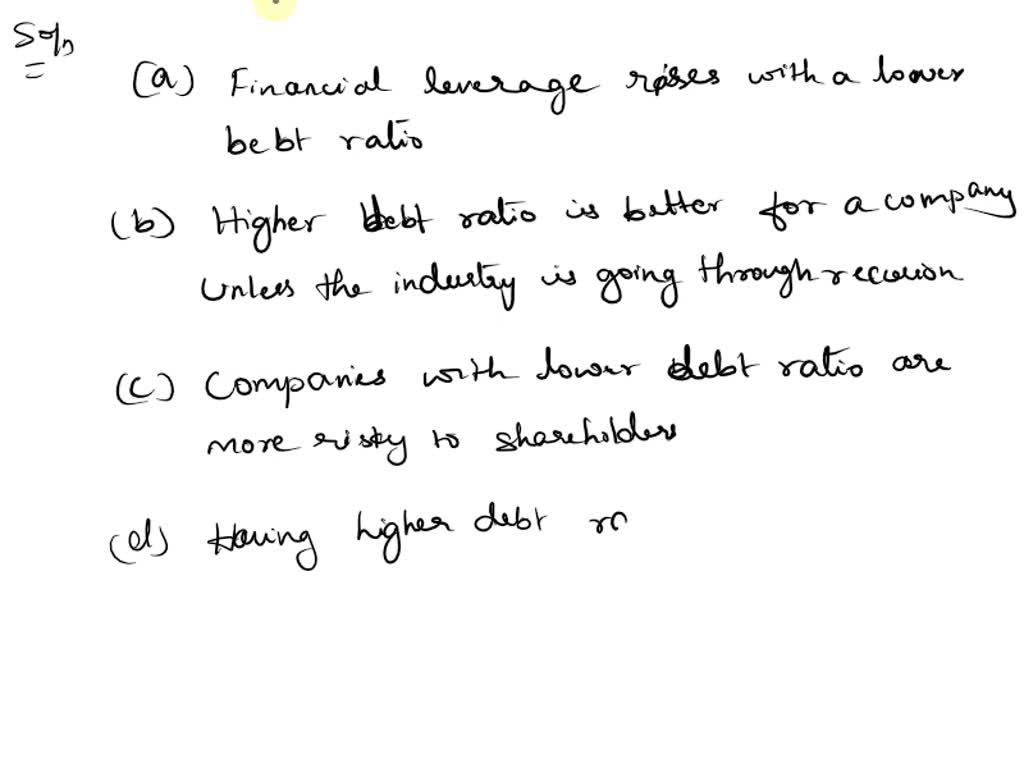 Soln
(a) Financial leverage rises with a lower
bebt ratio
(b) Higher debt ratio is better for a company
unless the industry is going through recession
(c) Companies with lower debt ratio are
more risky to shareholders
(d) Having higher debt ra